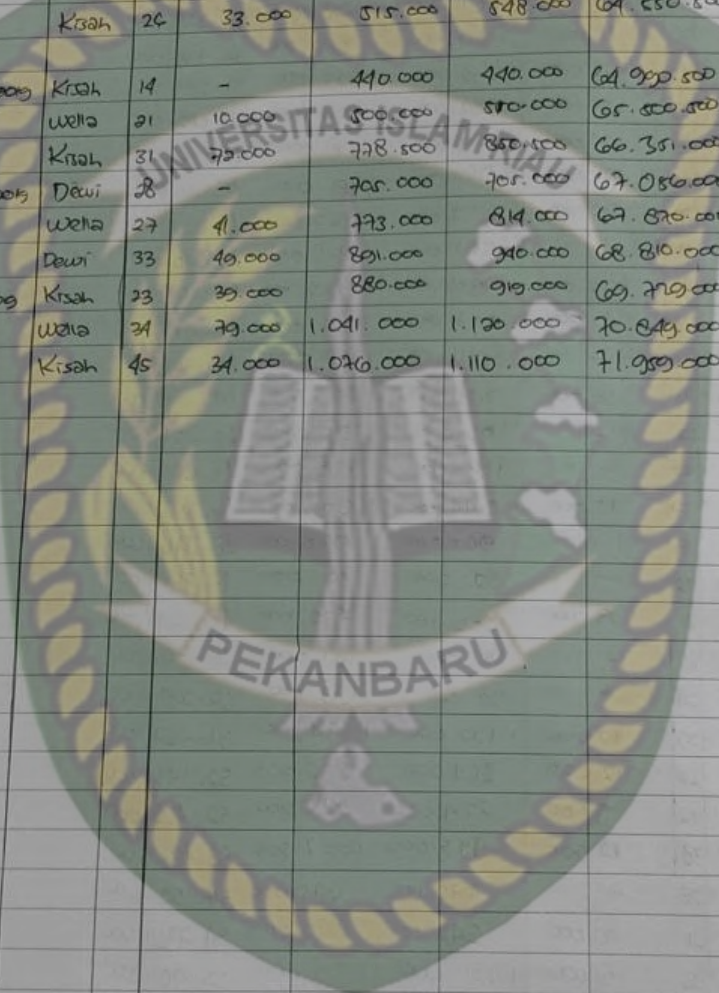 Kisah 26 33.000 515.000 548.000
Kisah 14 - 440.000 440.000 64.990.500
Wella 21 10.000 500.000 510.000 65.500.500
Kisah 31 72.000 778.500 850.500 66.351.000
Dewi 28 - 705.000 705.000 67.056.00
Wella 27 41.000 773.000 814.000 67.870.00
Dewi 33 49.000 891.000 940.000 68.810.000
Kisah 23 39.000 880.000 919.000 69.729.000
Wella 34 79.000 1.041.000 1.120.000 70.849.000
Kisah 45 34.000 1.076.000 1.110.000 71.959.000
UNIVERSITAS ISLAM RIAU
PEKANBARU